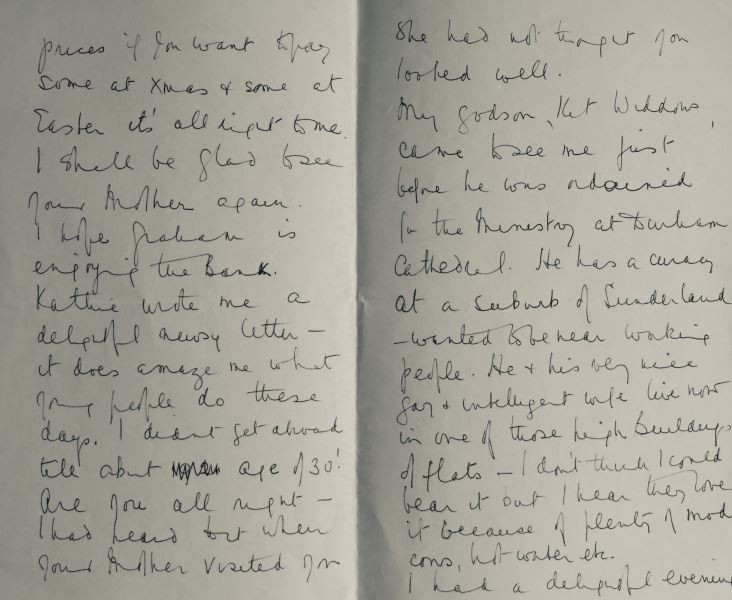 prices if you want to pay
some at Xmas & some at
Easter it's all right to me.
I shall be glad to see
your Mother again.
I hope Graham is
enjoying the Bank.
Kathie wrote me a
delightful newsy letter –
it does amaze me what
young people do these
days. I didn't get abroad
till about age of 30!
Are you all right –
I had heard that when
your Mother visited you
She had not thought you
looked well.
My godson, Kit Widdows,
came to see me just
before he was ordained
to the Ministry at Durham
Cathedral. He has a curacy
at a suburb of Sunderland
– wanted to be near working
people. He & his very nice
gay & intelligent wife live now
in one of those high buildings
of flats – I don't think I could
bear it but I hear they love
it because of plenty of mod
cons, hot water etc.
I had a delightful evening